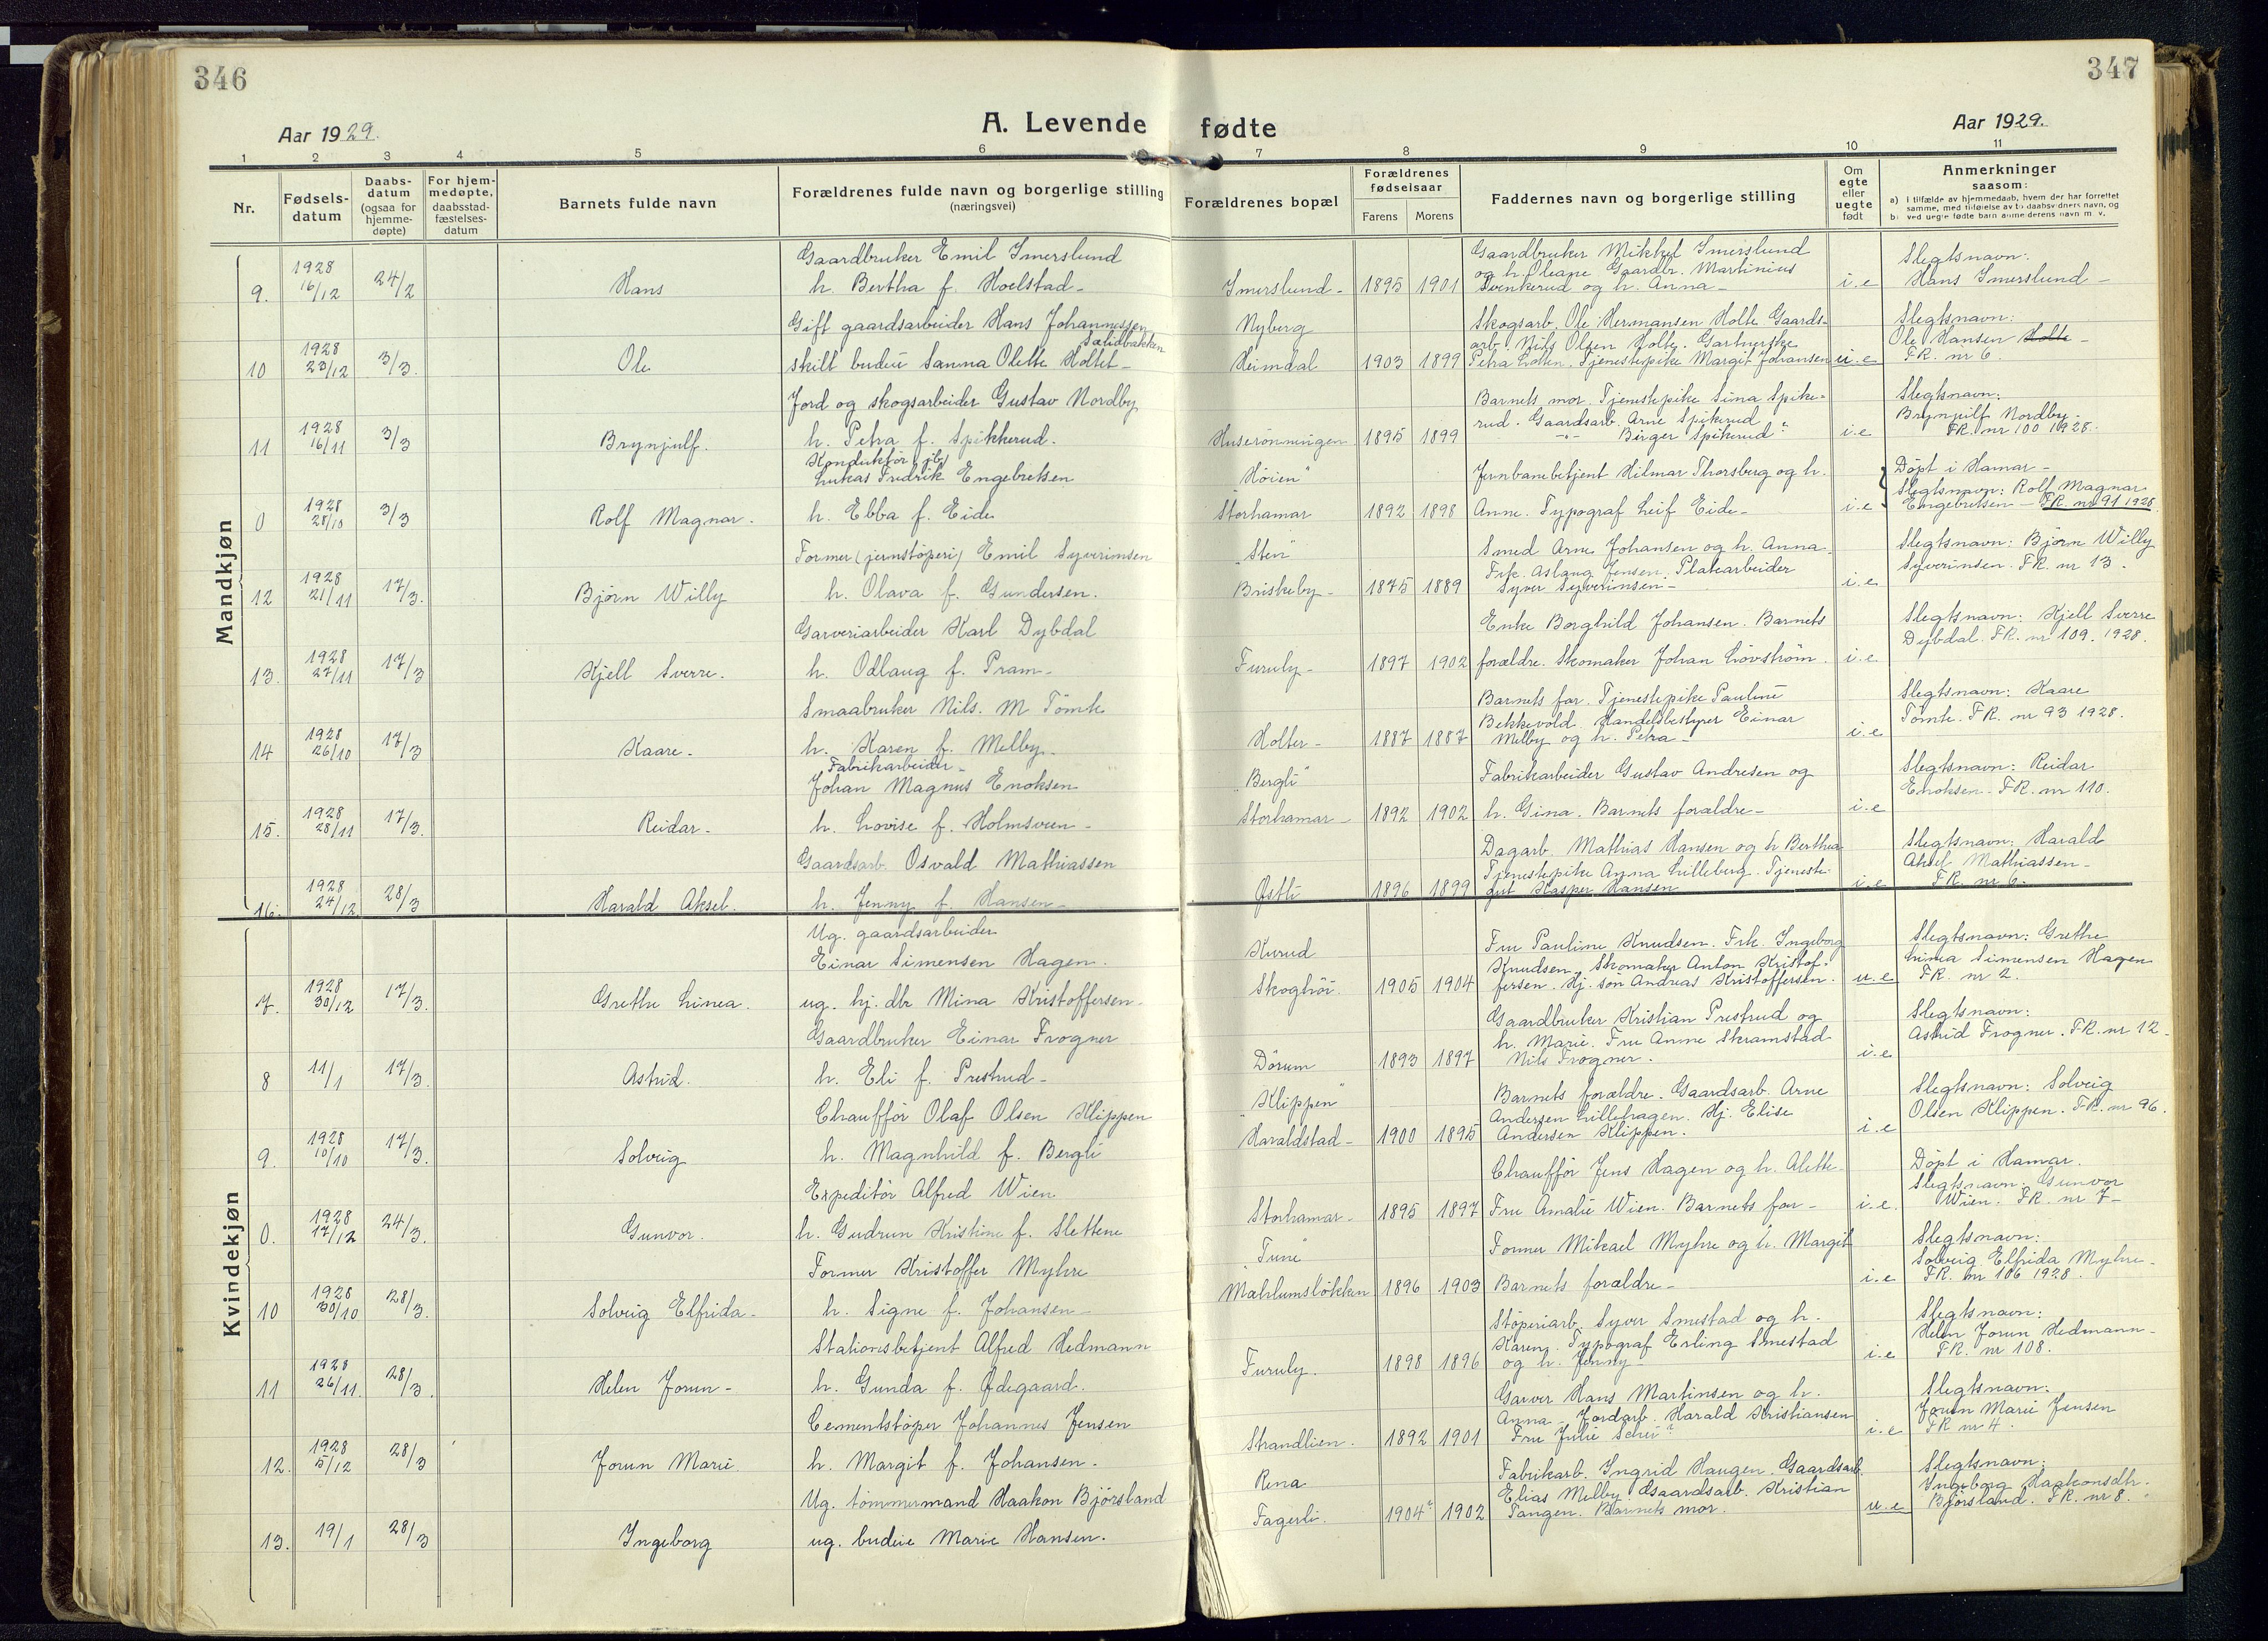 346
347
Aar 1929.
A. Levende fødte
Aar 1929.
1 2 3 4 5 6 7 8 9 10 11
Nr.
Fødsels-
datum
Daabs-
datum
(ogsaa for
hjemme-
døpte)
For hjem-
medøpte,
daabsstad-
fæstelses-
datum
Barnets fulde navn
Forældrenes fulde navn og borgerlige stilling
(næringsvei)
Forældrenes bopæl
Forældrenes
fødselsaar
Farens Morens
Faddernes navn og borgerlige stilling
Om
egte
eller
uegte
født
Anmerkninger
saasom:
a) i tilfælde av hjemmedaab, hvem der har forrettet
samme, med tilføielse av to daabsvidners navn, og
b) ved uegte fødte barn anmelderens navn m. v.
Mandkjøn
9. 1928 16/12 24/2 Hans
Gaardbruker Emil Imerslund
h. Bertha f. Hoelstad-
Imerslund- 1895 1901
Gaardbruker Mikkel Imerslund
og h. Oleane Gaardbr. Martinius
Svenkerud og h. Anna-
i.e
Slegtsnavn:
Hans Imerslund-
10 1928 23/12 3/3. Ole
Gift gaardsarbeider Hans Johannessen
Sælidbakken
skilt budeie Sanna Olette Holtet-
Nyberg
Heimdal 1903 1899
Skogsarb. Ole Hermansen Holte Gaards-
arb. Nils Olsen Holte. Gartnerske
Petra Lotten. Tjenestepike Margit Johansen
u.e
Slegtsnavn:
Ole Hansen Holte-
FR. nr 6.
11 1928 16/11 3/3 Brynjulf.
Jord og skogsarbeider Gustav Nordby
h. Petra f. Spikkerud.
Huserønningen 1895 1899
Barnets mor. Tjenestepike Sina Spike-
rud. Gaardsarb. Arne Spikerud
-"- Birger Spikerud?
i.e
Slegtsnavn:
Brynjulf Nordby-
FR. nr 100 1928.
0 1928 28/10 3/3 Rolf Magnar.
Konduktør
Lukas Fredrik Engebretsen
h. Ebba f. Eide
"Høien"
Storhamar 1892 1898
Jernbanebetjent Hilmar Thorsberg og h.
Anne. Typograf Leif Eide-
i.e
Døpt i Hamar-
Slegtsnavn: Rolf Magnar
Engebretsen-FR. nr 91 1928.
12 1928 21/11 17/3. Bjørn Willy
Former (jernstøperi) Emil Syverinsen
h. Olava f. Gundersen.
"Sten"
Briskeby- 1875 1889
Smed Arne Johansen og h. Anna.
Frk. Aslaug Jensen. Platearbeider
Syver Syverinsen-
i.e
Slegtsnavn: Bjørn Willy
Syverinsen. FR. nr 13.
13. 1928 27/11 17/3 Kjell Sverre.
Garveriarbeider Karl Dybdal
h. Odlaug f. Pram-
Furuly- 1897 1902
Enke Borghild Johansen. Barnets
forældre. Skomaker Johan Løvstrøm.
i.e
Slegtsnavn: Kjell Sverre
Dybdal. FR. nr 109. 1928.
14 1928 26/10 17/3 Kaare-
Smaabruker Nils. M Tømte
h. Karen f. Melby-
Holter- 1887 1887
Barnets far. Tjenestepike Pauline
Bekkevold. Handelsbestyrer Einar
Melby og h. Petra-
i.e
Slegtsnavn: Kaare
Tømte. FR. nr 93 1928.
15. 1928 28/11 17/3. Reidar-
Fabrikarbeider-
Johan Magnus Enoksen
h. Lovise f. Holmsveen-
"Bergli"
Storhamar- 1892 1902
Fabrikarbeider Gustav Andresen og
h. Gina. Barnets forældre-
i.e
Slegtsnavn: Reidar
Enoksen. FR. nr 110.
16. 1928 24/12 28/3 Harald Aksel.
Gaardsarb. Osvald Mathiassen
h. Jenny f. Hansen-
Østli 1896 1899
Dagarb. Mathias Hansen og h Berthea
Tjenestepike Anna Lilleberg. Tjeneste-
gut Kasper Hansen
i.e
Slegtsnavn: Harald
Aksel Mathiassen-
FR. nr 6.
Kvindekjøn
7. 1928 30/12 17/3. Grethe Linea.
Ug. gaardsarbeider
Einar Simensen Hagen.
ug. hj. dtr Mina Kristoffersen-
Kurud
Skoghøi. 1905 1904
Fru Pauline Knudsen. Frk. Ingeborg
Knudsen. Skomaker Anton Kristof-
fersen. Hj. søn Andreas Kristoffersen.
u.e
Slegtsnavn: Grethe
Linea Simensen Hagen
FR. nr 2.
8 11/1 17/3. Astrid.
Gaardbruker Einar Frogner
h. Eli f. Prestrud-
Dørum 1893 1897
Gaardbruker Kristian Prestrud og
h. Marie. Fru Anne Skramstad
Nils Frogner.
i.e
Slegtsnavn:
Astrid Frogner. FR. nr 12-
9. 1928 10/10 17/3. Solveig
Chauffør Olaf Olsen Klippen
h. Magnhild f. Bergli
"Klippen"
Haraldstad- 1900 1895
Barnets forældre. Gaardsarb. Arne
Andersen Lillehagen. Hj. Elise
Andersen Klippen.
i.e
Slegtsnavn: Solveig
Olsen Klippen. FR. nr 96.
0. 1928 17/12 24/3. Gunvor.
Expeditør Alfred Wien
h. Gudrun Kristine f. Slettene
Storhamar- 1895 1897
Chauffør Jens Hagen og h. Alette-
Fru Amalie Wien. Barnets far-
i.e.
Døpt i Hamar.
Slegtsnavn: Gunvor
Wien. FR. nr 7-
10 1928 30/10 28/3. Solveig Elfrida-
Former Kristoffer Myhre
h. Signe f. Johansen-
"Tune"
Mæhlumsløkken 1896 1903
Former Mikael Myhre og h. Margit
Barnets forældre-
i.e
Slegtsnavn:
Solveig Elfrida Myhre-
FR. nr 106 1928.
11 1928 26/11. 28/3. Helen Jorun-
Stationsbetjent Alfred Hedmann
h. Gunda f. Ødegaard.
Furuly. 1898 1896
Støperiarb. Syver Smestad og h.
Karen. Typograf Erling Smestad
og h. Jenny-
i.e
Slegtsnavn:
Helen Jorun Hedmann-
FR. nr 108.
12. 1928 5/12 28/3 Jorun Marie.
Cementstøper Johannes Jensen
h. Margit f. Johansen.
Strandlien. 1892 1901
Garver Hans Martinsen og h.
Anna. Jordarb. Harald Kristiansen
Fru Julie Schei?
i.e
Slegtsnavn:
Jorun Marie Jensen
FR nr 4.
13. 19/1 28/3 Ingeborg
Ug. tømmermand Haakon Bjørsland
ug. budeie Marie Hansen.
Rena
Fagerli. 1904? 1902
Fabrikarb. Ingrid Haugen. Gaardsarb.
Elias Melby. Gaardsarb. Kristian
Tangen. Barnets mor.
u.e
Slegtsnavn:
Ingeborg Haakonsdtr.
Bjørsland. FR. nr 8.